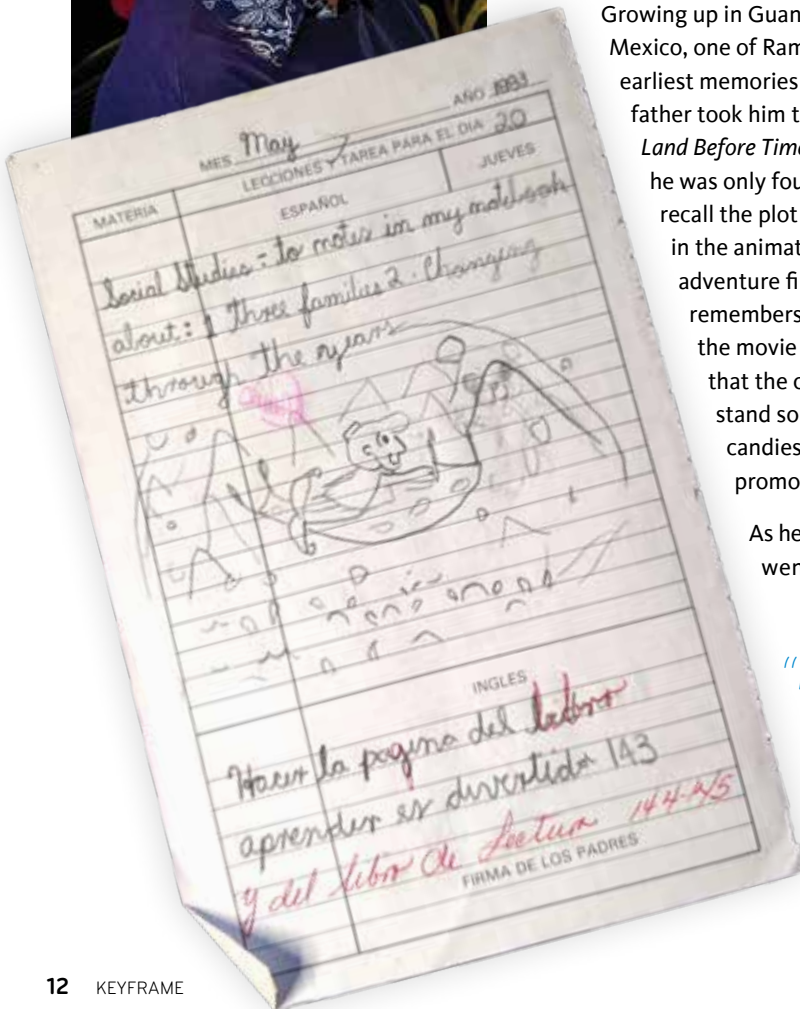 Growing up in Guan
Mexico, one of Ram
earliest memories
father took him t
Land Before Time
he was only fou
recall the plot
in the animat
adventure fi
remembers
the movie
that the c
stand so
candies
promo
As he
wen
MES May AÑO 1993
LECCIONES Y TAREA PARA EL DIA 20
MATERIA ESPAÑOL JUEVES
Social Studies = to notes in my notebook
about: 1 three families 2. Changing
through the years
INGLES
Hacer la pagina del libro
aprender es divertido 143
y del libro de Lectura 144-145
FIRMA DE LOS PADRES
12 KEYFRAME